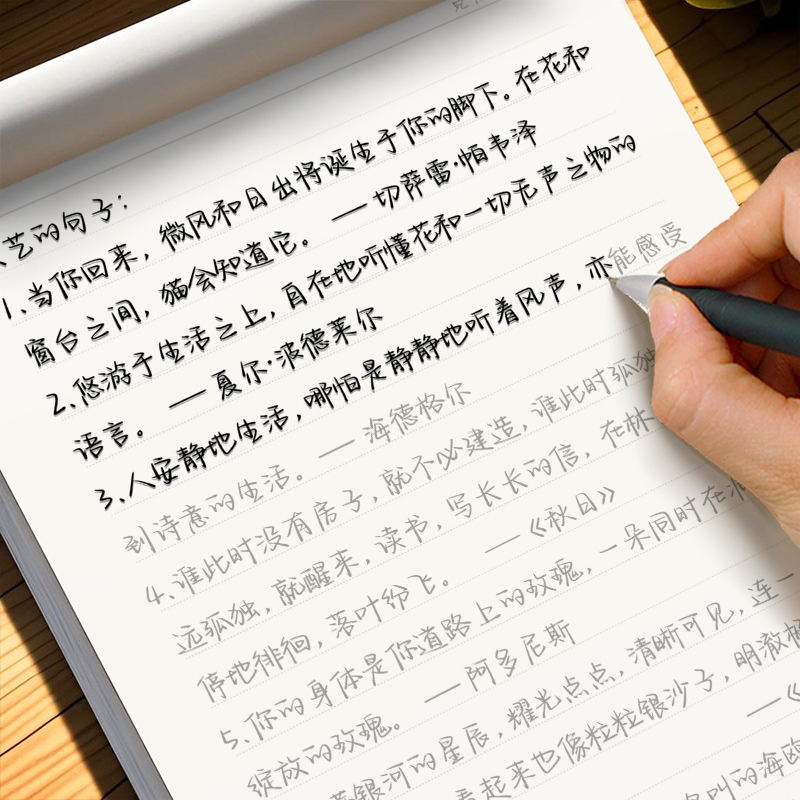 艺的句子：
1.当你回来，微风和日出将诞生于你的脚下。在花和
窗台之间，猫会知道它。 —切萨雷·帕韦泽
2.悠游于生活之上，自在地听懂花和一切无声之物的
语言。 —夏尔·波德莱尔
3.人安静地生活，哪怕是静静地听着风声，亦能感受
到诗意的生活。—海德格尔
4.谁此时没有房子，就不必建造，谁此时孤独
远孤独，就醒来，读书，写长长的信，在林
停地徘徊，落叶纷飞。 —《秋日》
5.你的身体是你道路上的玫瑰，一朵同时在
绽放的玫瑰。 —阿多尼斯
银河的星辰，耀光点点，清晰可见，连一
看起来也像粒粒银沙子，明澈
—《
叫的海鸥